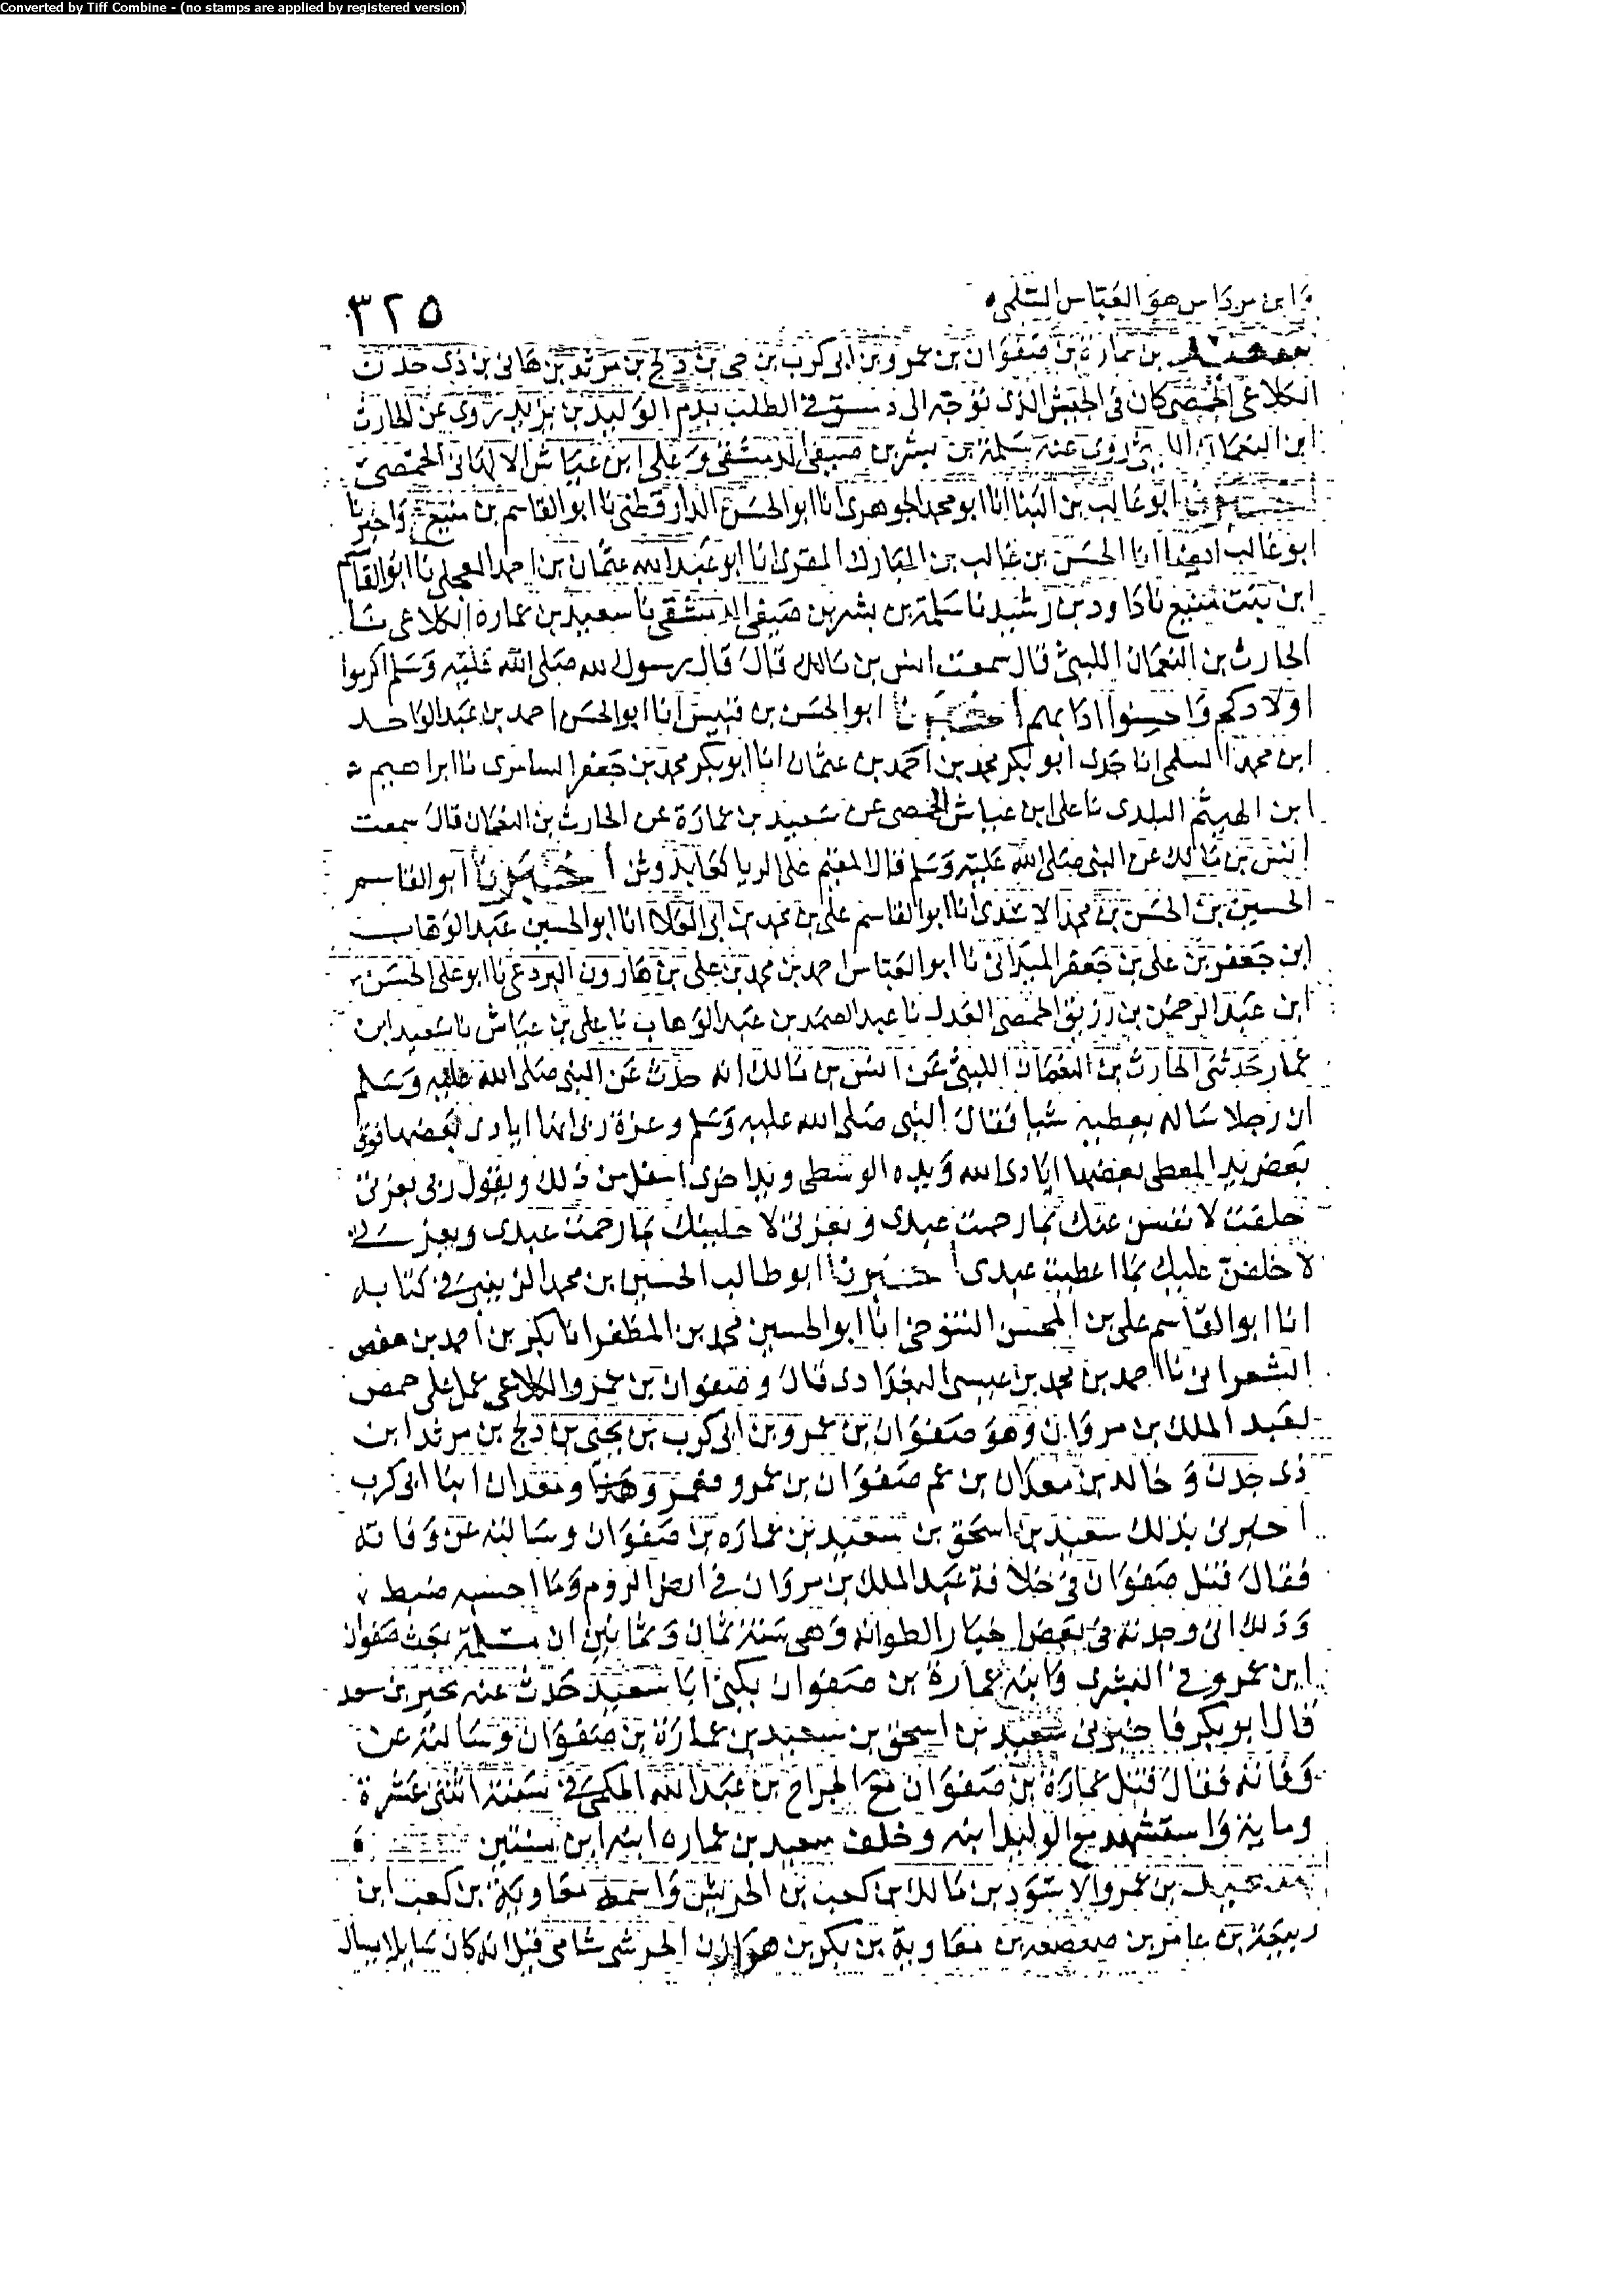 Converted by Tiff Combine - (no stamps are applied by registered version)
٣٢٥
وابن مرداس هو العباس السلمي
سعيد بن عمارة بن صفوان بن عمرو بن ابي كرب بن حي بن دلج بن مرثد بن هاني بن ذي جدن
الكلاعي الحمصي كان في الجيش الذي توجه الى دمشق في الطلب بدم الوليد بن يزيد روى عن الحارث
ابن النعمان الليثي روى عنه سلمة بن بشر بن صيفي الدمشقي وعلي ابن عياش الالهاني الحمصي
اخبرنا ابو غالب بن البنا انا ابو محمد الجوهري انا ابو الحسن الدارقطني نا ابو القاسم بن منيع ح واخبرنا
ابو غالب ايضا انا الحسن بن غالب بن المبارك المقرئ انا ابو عبد الله عثمان بن احمد العجلي نا ابو القاسم
ابن بنت منيع نا داود بن رشيد نا سلمة بن بشر بن صيفي الدمشقي نا سعيد بن عمارة الكلاعي نا
الحارث بن النعمان الليثي قال سمعت انس بن مالك قال قال رسول الله صلى الله عليه وسلم اكرموا
اولادكم واحسنوا ادابهم اخبرنا ابو الحسن بن قبيس انا ابو الحسن احمد بن عبد الواحد
ابن محمد السلمي انا جدي ابو بكر محمد بن احمد بن عثمان انا ابو بكر محمد بن جعفر السامري نا ابراهيم
ابن الهيثم البلدي نا علي ابن عياش الحمصي عن سعيد بن عمارة عن الحارث بن النعمان قال سمعت
انس بن مالك عن النبي صلى الله عليه وسلم قال المقيم على الربا كعابد وثن اخبرنا ابو القاسم
الحسين بن الحسن بن محمد الاسدي انا ابو القاسم علي بن محمد بن ابي العلا انا ابو الحسين عبد الوهاب
ابن جعفر بن علي بن جعفر الميداني نا ابو العباس احمد بن محمد بن علي بن هارون البردعي نا ابو علي الحسن
ابن عبد الرحمن بن رزيق الحمصي العدل نا عبد الصمد بن عبد الوهاب نا علي بن عياش نا سعيد ابن
عمار حدثني الحارث بن النعمان الليثي عن انس بن مالك انه حدث عن النبي صلى الله عليه وسلم
ان رجلا ساله يعطيه شيا فقال النبي صلى الله عليه وسلم وعزة ربي انها ايادي بعضها فوق
بعض يد المعطي بعضها ايادي الله ويده الوسطى ويد اخرى اسفل من ذلك ويقول ربي بعزتي
حلفت لا نفسن عنك بما رحمت عبدي وبعزتي لا حلينك بما رحمت عبدي وبعزتي
لا خلفن عليك بما اعطيت عبدي اخبرنا ابو طالب الحسين بن محمد الزينبي في كتابه
انا ابو القاسم علي بن المحسن التنوخي انا ابو الحسين محمد بن المظفر انا بكر بن احمد بن حفص
الشعراني نا احمد بن محمد بن عيسى البغدادي قال وصفوان بن عمرو الكلاعي عمل على حمص
لعبد الملك بن مروان وهو صفوان بن عمرو بن ابي كرب بن يحيى بن دلج بن مرثد ابن
ذي جدن وخالد بن معدان بن عم صفوان بن عمرو فعمرو هذا ومعدان ابنا ابي كرب
اخبرني بذلك سعيد بن اسحق بن سعيد بن عمارة بن صفوان وسالته عن وفاته
فقال قتل صفوان في خلافة عبد الملك بن مروان في ارض الروم وما احسبه ضبط
وذلك اني وجدته في بعض اخبار الطوانه وهي سنة ثمان وثمانين ان مسلمة بعث صفوان
ابن عمرو في البشرى وابنه عمارة بن صفوان يكنى ابا سعيد حدث عنه بحير بن سعد
قال ابو بكر فاخبرني سعيد بن اسحق بن سعيد بن عمارة بن صفوان وسالته عن
وفاته فقال قتل عمارة بن صفوان مع الجراح بن عبد الله الحكمي في سنة اثنتي عشرة
وماية واستشهد مع الوليد ابنه وخلف سعيد بن عماره ابنه ابن سنتين
سعيد بن عمرو الاسود بن مالك بن كعب بن الحريش واسمه معاوية بن كعب ابن
ربيعة بن عامر بن صعصعة بن معاوية بن بكر بن هوازن الحرشي شامي قيل انه كان سايلا يسال